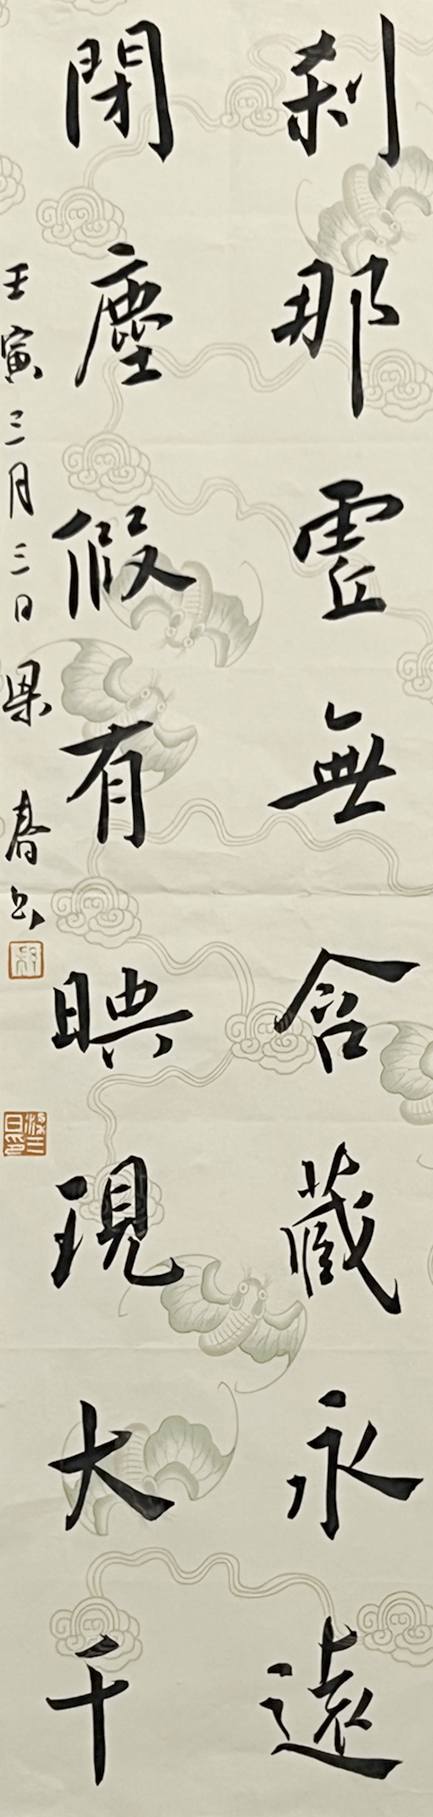 刹那虚無含藏永遠
閒塵假有映現大千
壬寅三月三日梁春书